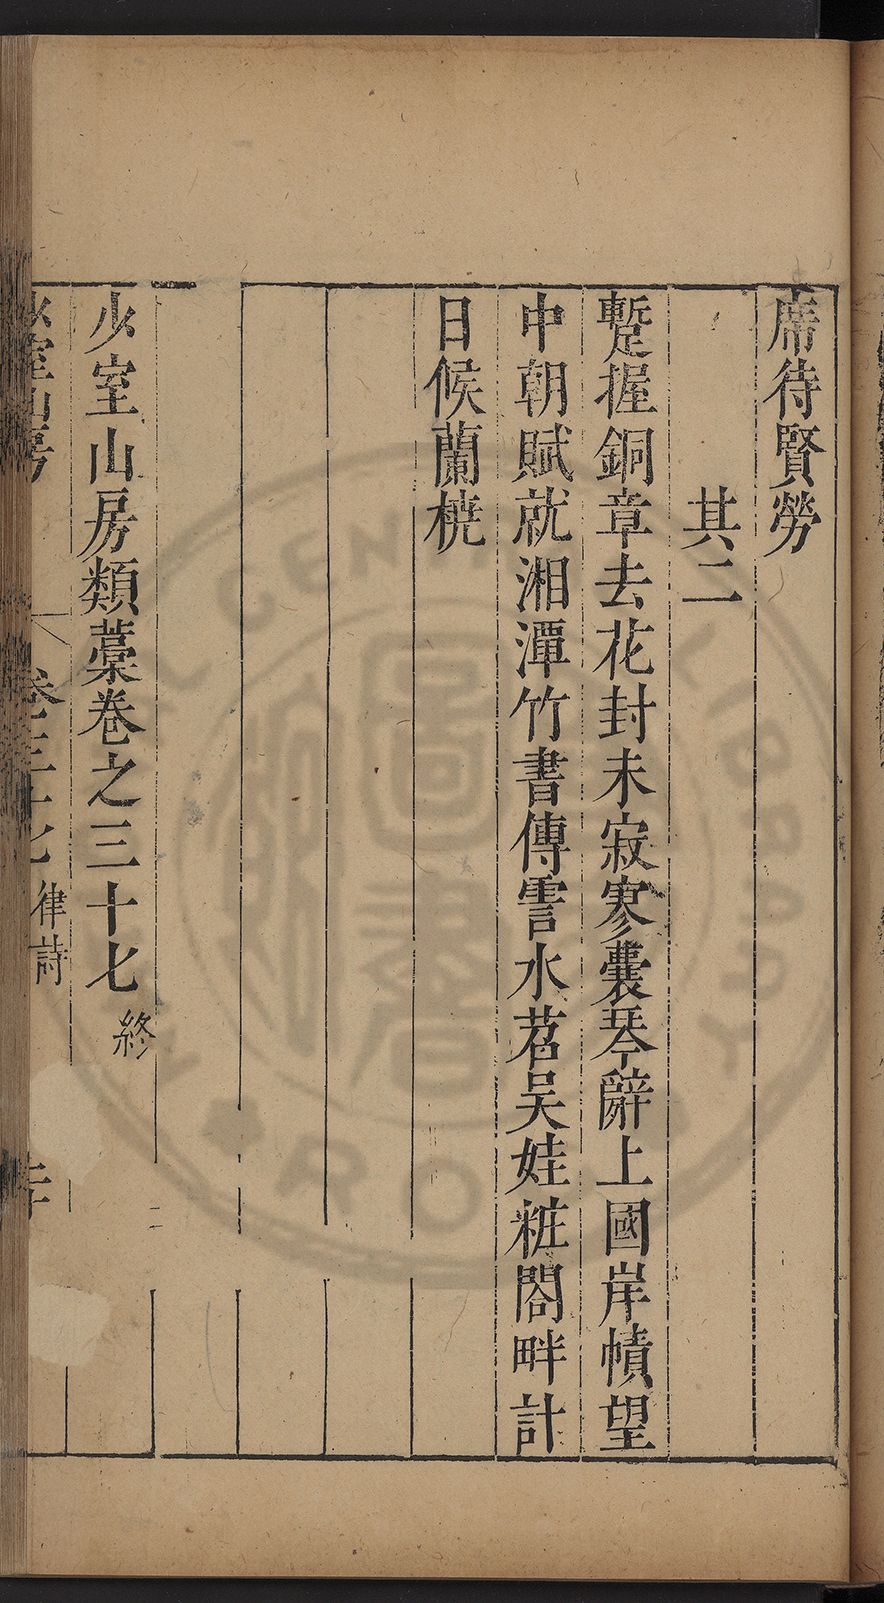 席待賢勞
其二
蹔握銅章去花封未寂寥囊琴辭上國岸幘望
中朝賦就湘潭竹書傳霅水苕吴娃粧閣畔計
日候蘭橈
少室山房類藁卷之三十七終
室山房 卷三十七 律詩